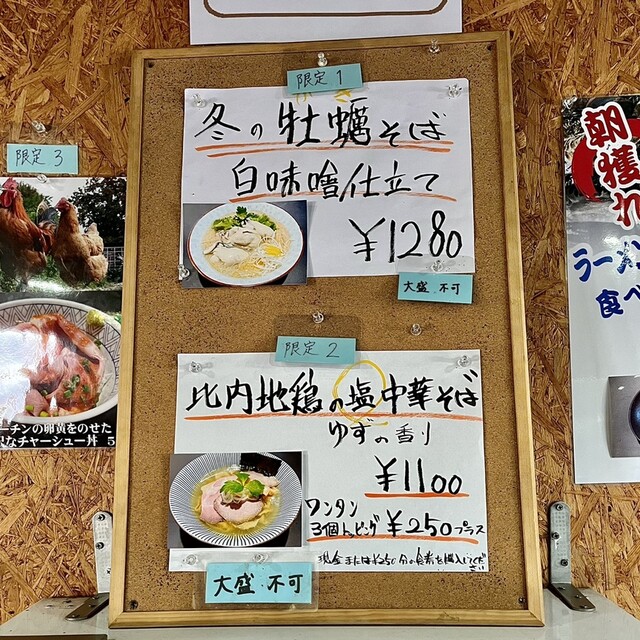 限定 1
かき
冬の牡蠣そば
白味噌仕立て
¥1280
大盛 不可
限定 2
比内地鶏の塩中華そば
ゆずの香り
¥1100
ワンタン
3個トッピング ¥250プラス
現金または¥250分の食券を購入してくだ
さい
大盛 不可
限定 3
ーチンの卵黄をのせた
なチャーシュー丼 5
朝獲れ
ラーメ
食べ